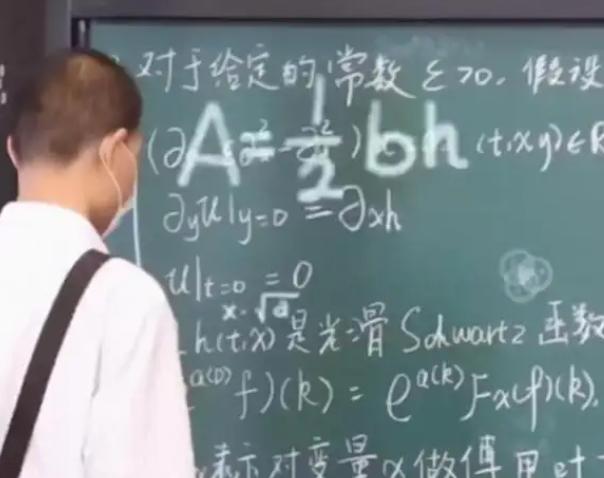 对于给定的常数 ε>0, 假设
A = 1/2 bh
(t,x,y)∈R
∂yu|y=0 = ∂xh
u|t=0 = 0
h(t,x) 是光滑 Schwartz 函数
a(D) f)(k) = e^a(k) Fx(f)(k),
表示对变量x做傅里叶